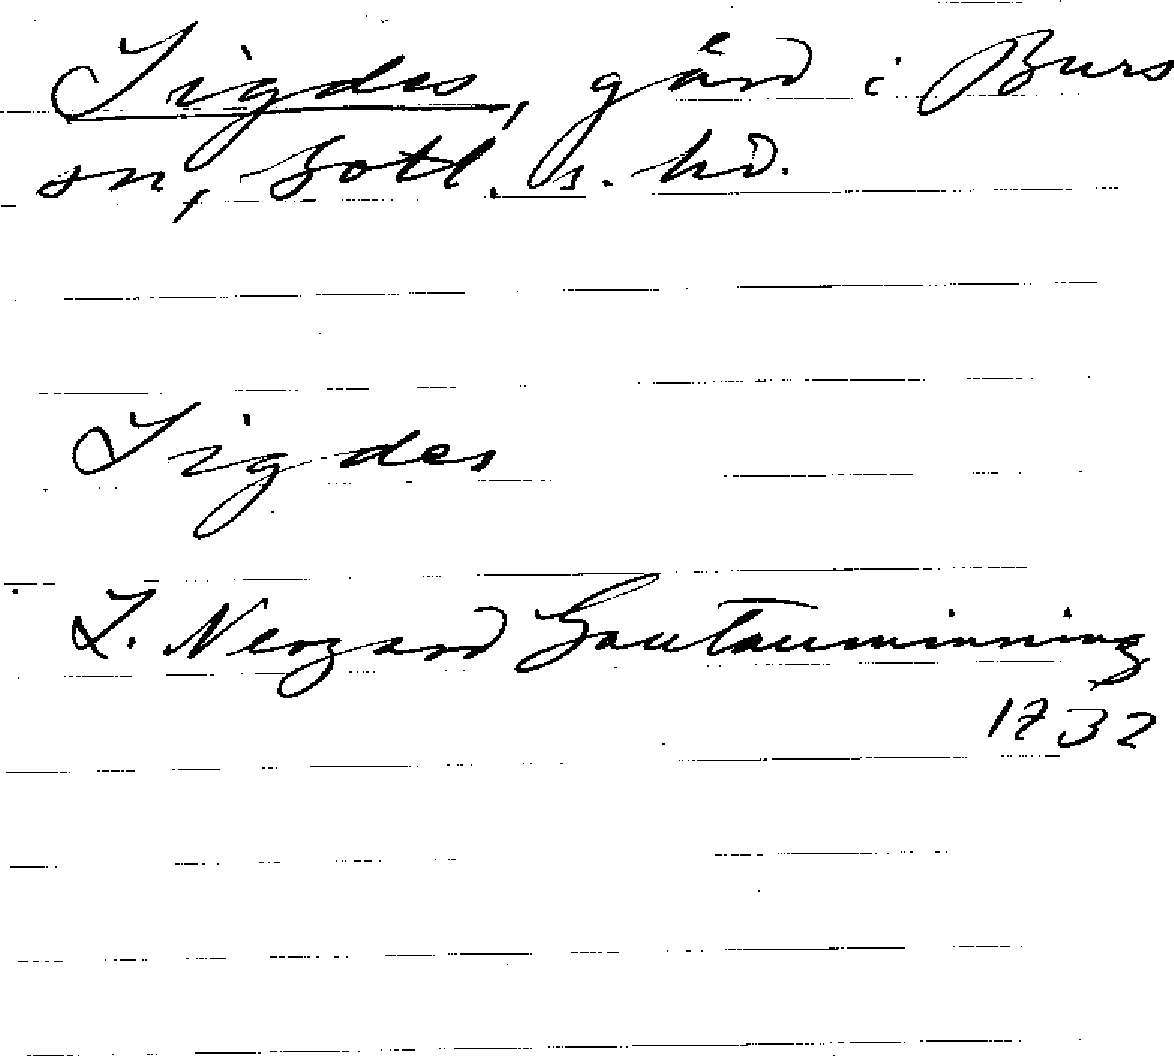 Sigdes, gård i Burs
sn, Gotl. s. hd.
Sigdes
L. Neogard Gautauminning
1732